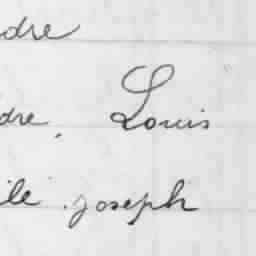 dre
dre, Louis
ile joseph